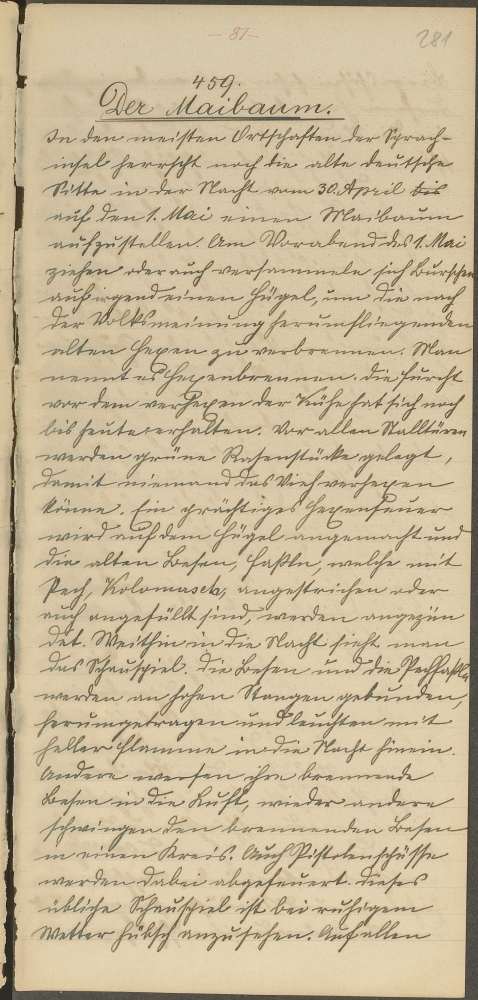 - 81 -
281
459.
Der Maibaum.
In den meisten Ortschaften der Sprach-
insel herrscht noch die alte deutsche
Sitte in der Nacht vom 30. April bis
auf den 1. Mai einen Maibaum
aufzustellen. Am Vorabend des 1. Mai
ziehen oder auch versammeln sich Burschen
auf irgend einen Hügel, um die nach
der Volksmeinung herumfliegenden
alten Hexen zu verbrennen. Man
nennt es Hexenbrennen. Die Furcht
vor dem verhexen der Kühe hat sich noch
bis heute erhalten. Vor allen Stalltüren
werden grüne Rasenstücke gelegt,
damit niemand das Vieh verhexen
könne. Ein prächtiges Hexenfeuer
wird auf dem Hügel angemacht und
die alten Besen, Faßln, welche mit
Pech, Kolomasch, angestrichen oder
auch angefüllt sind, werden angezün
det. Weithin in die Nacht sieht man
das Schauspiel. Die Besen und die Pechfaßln
werden an hohen Stangen gebunden,
herumgetragen und leuchten mit
heller Flamme in die Nacht hinein.
Andere werfen ihre brennende
Besen in die Luft, wieder andere
schwingen den brennenden Besen
in einen Kreis. Auch Pistolenschüsse
werden dabei abgefeuert. Dieses
übliche Schauspiel ist bei ruhigem
Wetter hübsch anzusehen. Auf allen